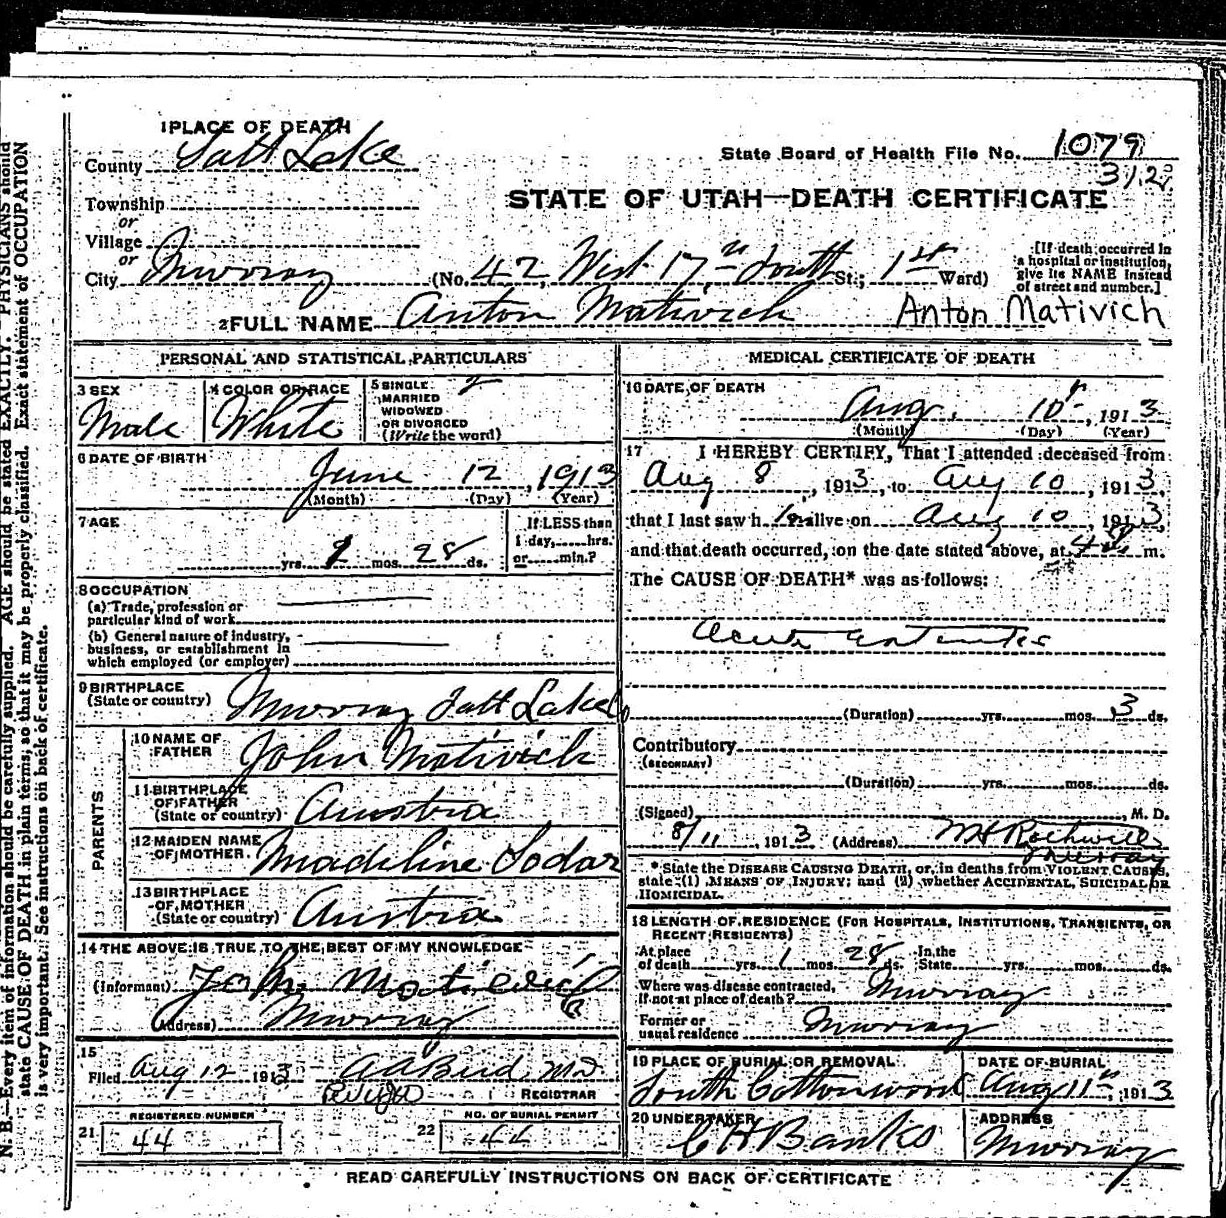 1 PLACE OF DEATH
County Salt Lake
State Board of Health File No. 1079
312
STATE OF UTAH—DEATH CERTIFICATE
Township
or
Village
or
City Murray (No. 42, West 17th South St.; 1st Ward)
[If death occurred in a hospital or institution, give its NAME instead of street and number.]
2 FULL NAME Anton Mativich Anton Mativich
PERSONAL AND STATISTICAL PARTICULARS
3 SEX Male
4 COLOR OR RACE White
5 SINGLE, MARRIED WIDOWED OR DIVORCED (Write the word)
6 DATE OF BIRTH
June 12, 1913
(Month) (Day) (Year)
7 AGE
yrs. mos. 28 ds.
If LESS than 1 day, hrs. or min.?
8 OCCUPATION
(a) Trade, profession or particular kind of work
(b) General nature of industry, business, or establishment in which employed (or employer)
9 BIRTHPLACE (State or country) Murray Salt Lake Co
PARENTS
10 NAME OF FATHER John Mativich
11 BIRTHPLACE OF FATHER (State or country) Austria
12 MAIDEN NAME OF MOTHER Madeline Sodar
13 BIRTHPLACE OF MOTHER (State or country) Austria
14 THE ABOVE IS TRUE TO THE BEST OF MY KNOWLEDGE
(Informant) John
(Address) Murray
15
Filed Aug 12 1913 REGISTRAR
REGISTERED NUMBER
21 44
NO. OF BURIAL PERMIT
22 44
MEDICAL CERTIFICATE OF DEATH
16 DATE OF DEATH
Aug. 10th, 1913
(Month) (Day) (Year)
17 I HEREBY CERTIFY, That I attended deceased from
Aug 8, 1913, to Aug 10, 1913,
that I last saw h alive on Aug 10, 1913,
and that death occurred, on the date stated above, at m.
The CAUSE OF DEATH* was as follows:
Acute Enteritis
(Duration) yrs. mos. 3 ds.
Contributory
(SECONDARY)
(Duration) yrs. mos. ds.
(Signed) M. D.
8/11, 1913 (Address) Rothwell
Murray
* State the DISEASE CAUSING DEATH, or, in deaths from VIOLENT CAUSES, state (1) MEANS OF INJURY; and (2) whether ACCIDENTAL, SUICIDAL OR HOMICIDAL.
18 LENGTH OF RESIDENCE (FOR HOSPITALS, INSTITUTIONS, TRANSIENTS, OR RECENT RESIDENTS)
At place of death yrs. 1 mos. 28 ds. In the State yrs. mos. ds.
Where was disease contracted, if not at place of death? Murray
Former or usual residence Murray
19 PLACE OF BURIAL OR REMOVAL South Cottonwood
DATE OF BURIAL Aug 11th, 1913
20 UNDERTAKER C H Banks
ADDRESS Murray
READ CAREFULLY INSTRUCTIONS ON BACK OF CERTIFICATE
N. B.—Every item of information should be carefully supplied. AGE should be stated EXACTLY. PHYSICIANS should
state CAUSE OF DEATH in plain terms, so that it may be properly classified. Exact statement of OCCUPATION
is very important. See instructions on back of certificate.